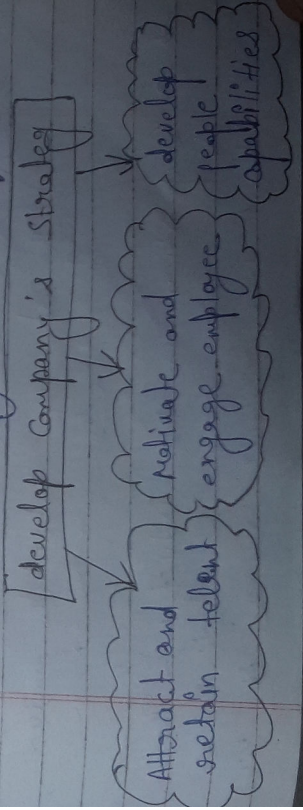 develop company's strategy
Attract and
retain telent
Motivate and
engage employee
develop
people
capabilities